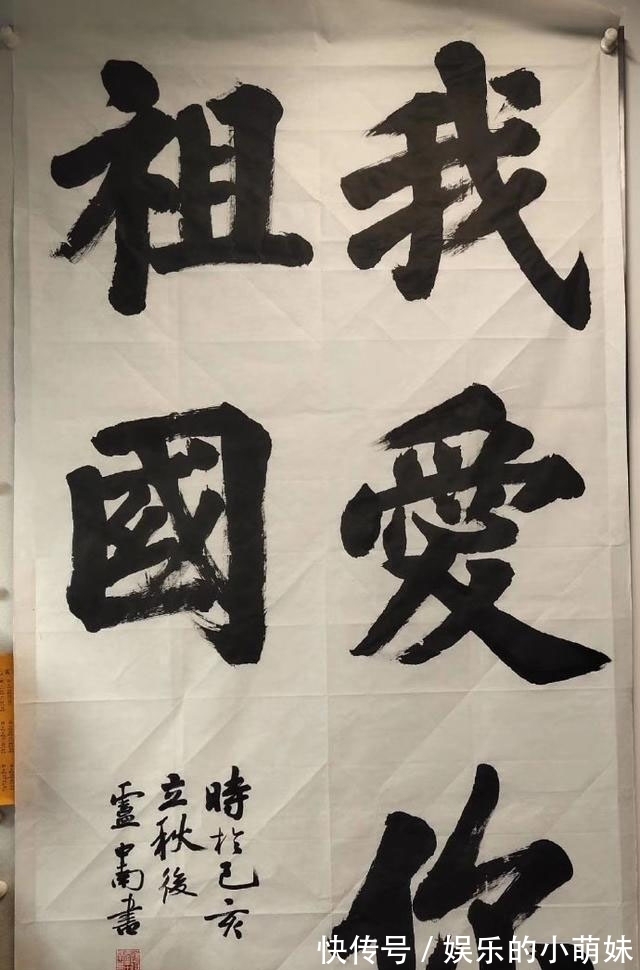 我愛你
祖國
時於己亥
立秋後
盧中南書
快传号 / 娱乐的小萌妹